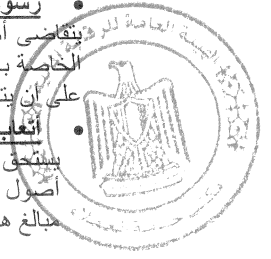 رسو
يتقاضى أ
الخاصة ب
على أن يت
أتعاب
يستحق
أصول
مبالغ ه
الهيئة العامة للر